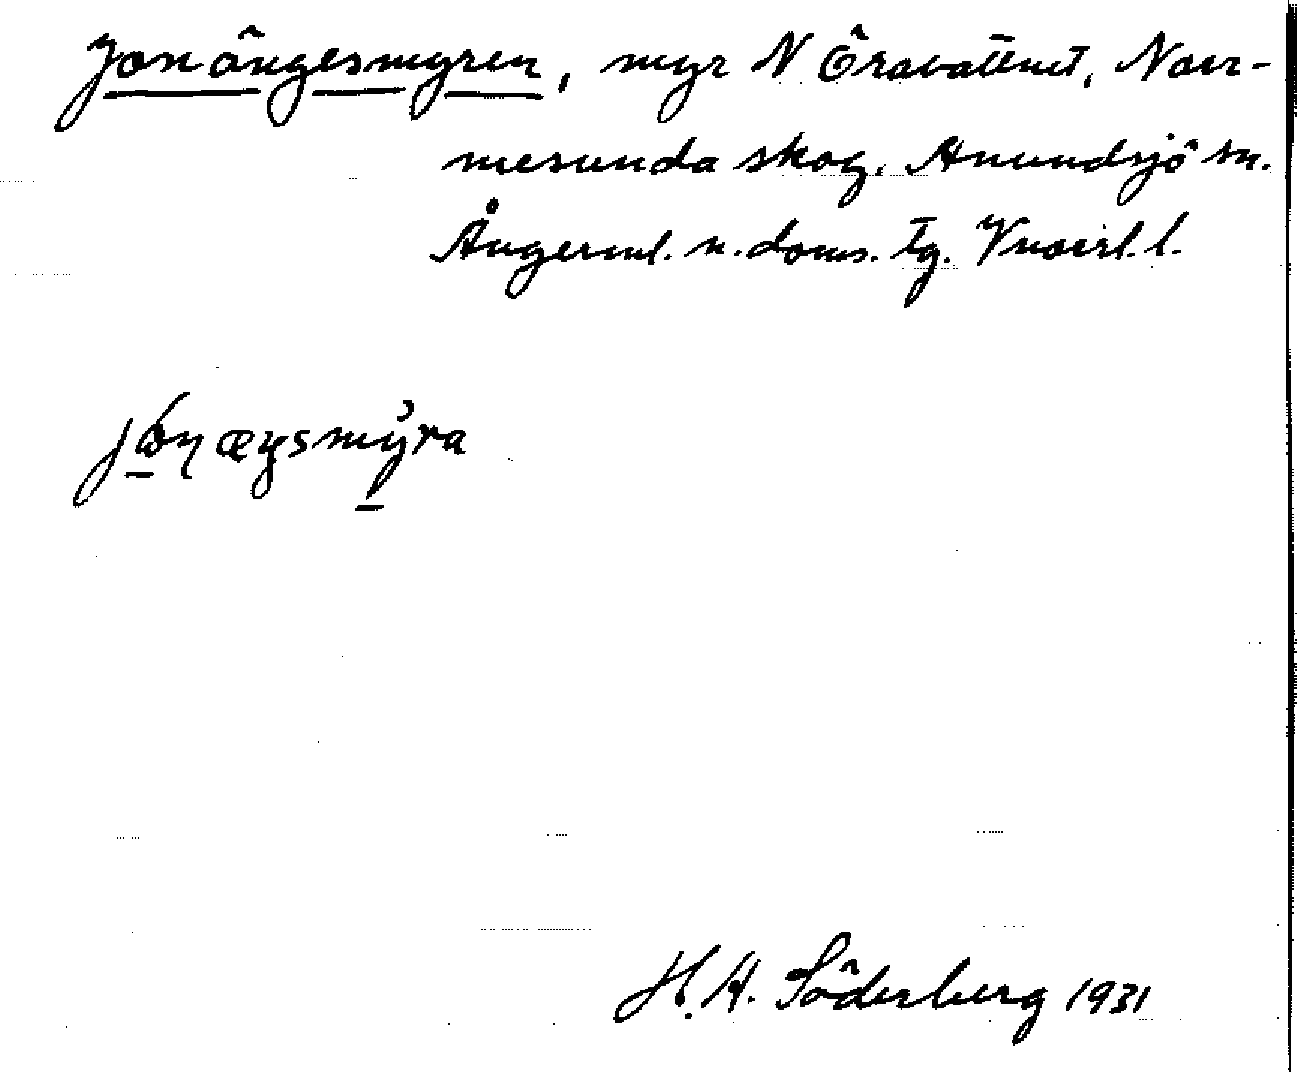 Jonängesmyren, myr N Öravattnet, Norr-
mesunda skog. Anundsjö sn.
Ångerml. n. doms. tg. Vnorrl. l.
H. A. Söderberg 1931